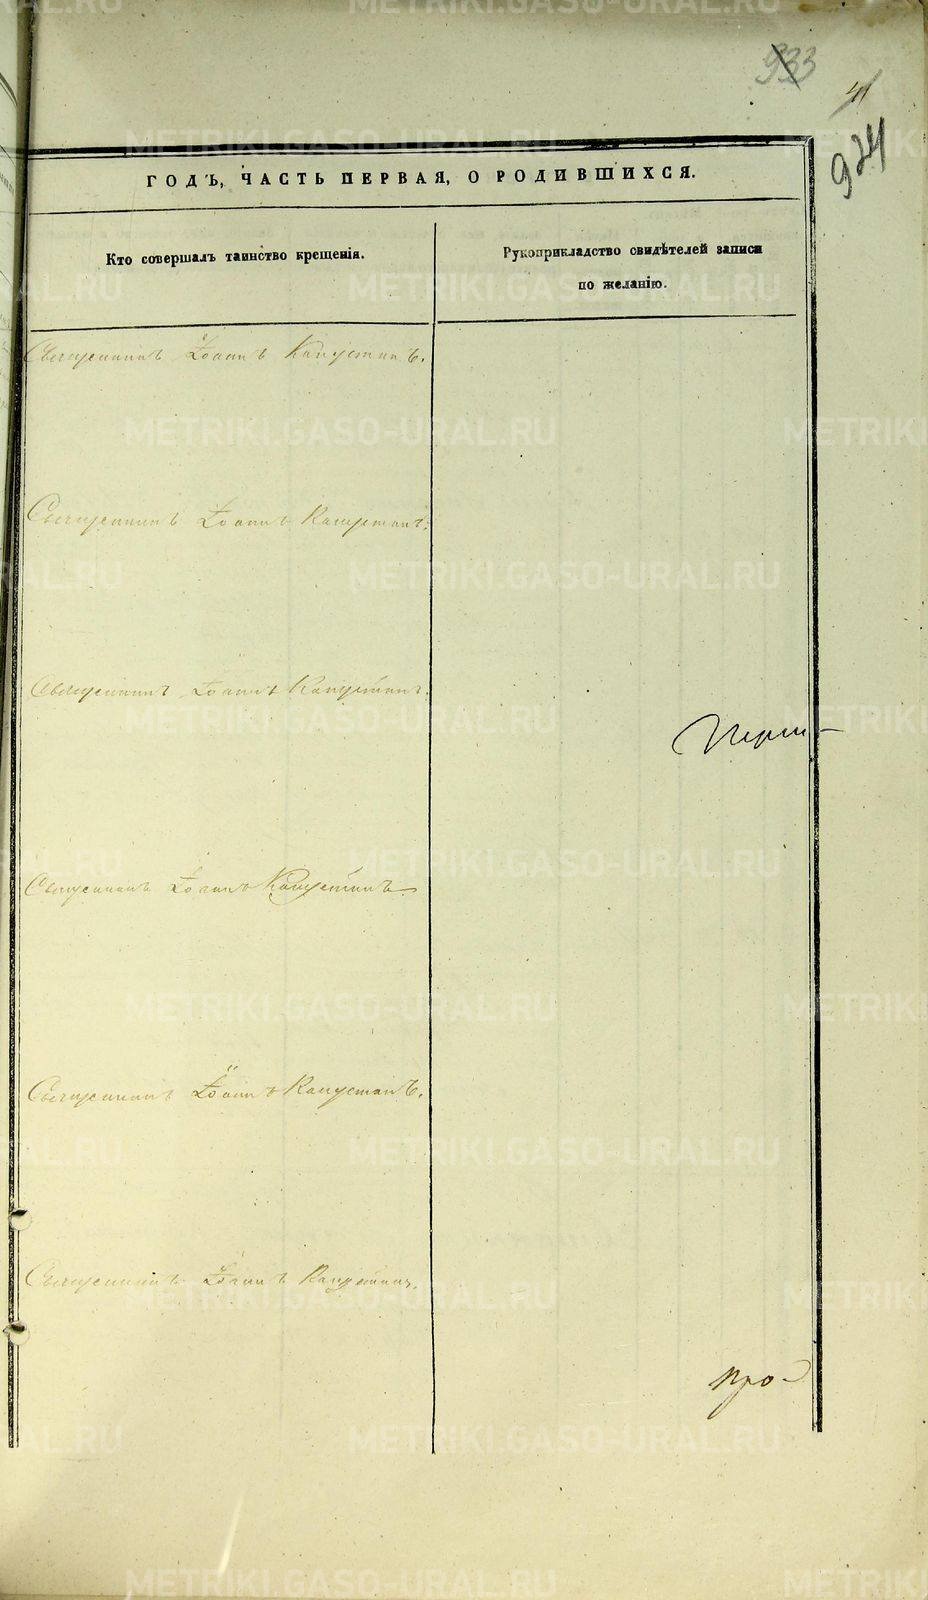 933
41
924
ГОДЪ, ЧАСТЬ ПЕРВАЯ, О РОДИВШИХСЯ.
Кто совершалъ таинство крещенія.
Рукоприкладство свидѣтелей записи
по желанію.
Священникъ Іоаннъ Капустинъ.
Священникъ Іоаннъ Капустинъ.
Священникъ Іоаннъ Капустинъ.
Священникъ Іоаннъ Капустинъ.
Священникъ Іоаннъ Капустинъ.
Священникъ Іоаннъ Капустинъ.
про-
METRIKI.GASO-URAL.RU